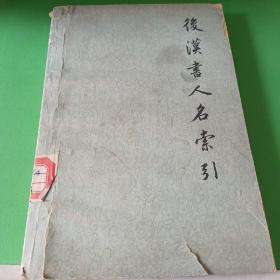 後漢書人名索引
4